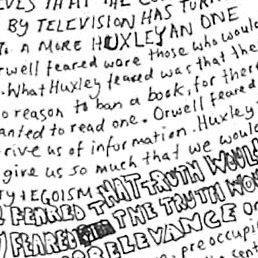 BY TELEVISION HAS TURN
A MORE HUXLEYAN ONE
rwell feared were those who would
. What Huxley feared was that the
o reason to ban a book, for there
anted to read one. Orwell feared
rive us of information. Huxley
give us so much that we would
TY + EGOISM
FEARED THAT TRUTH WOUL
FEARED THE TRUTH WO
RRELEVANCE Or
preoccupi